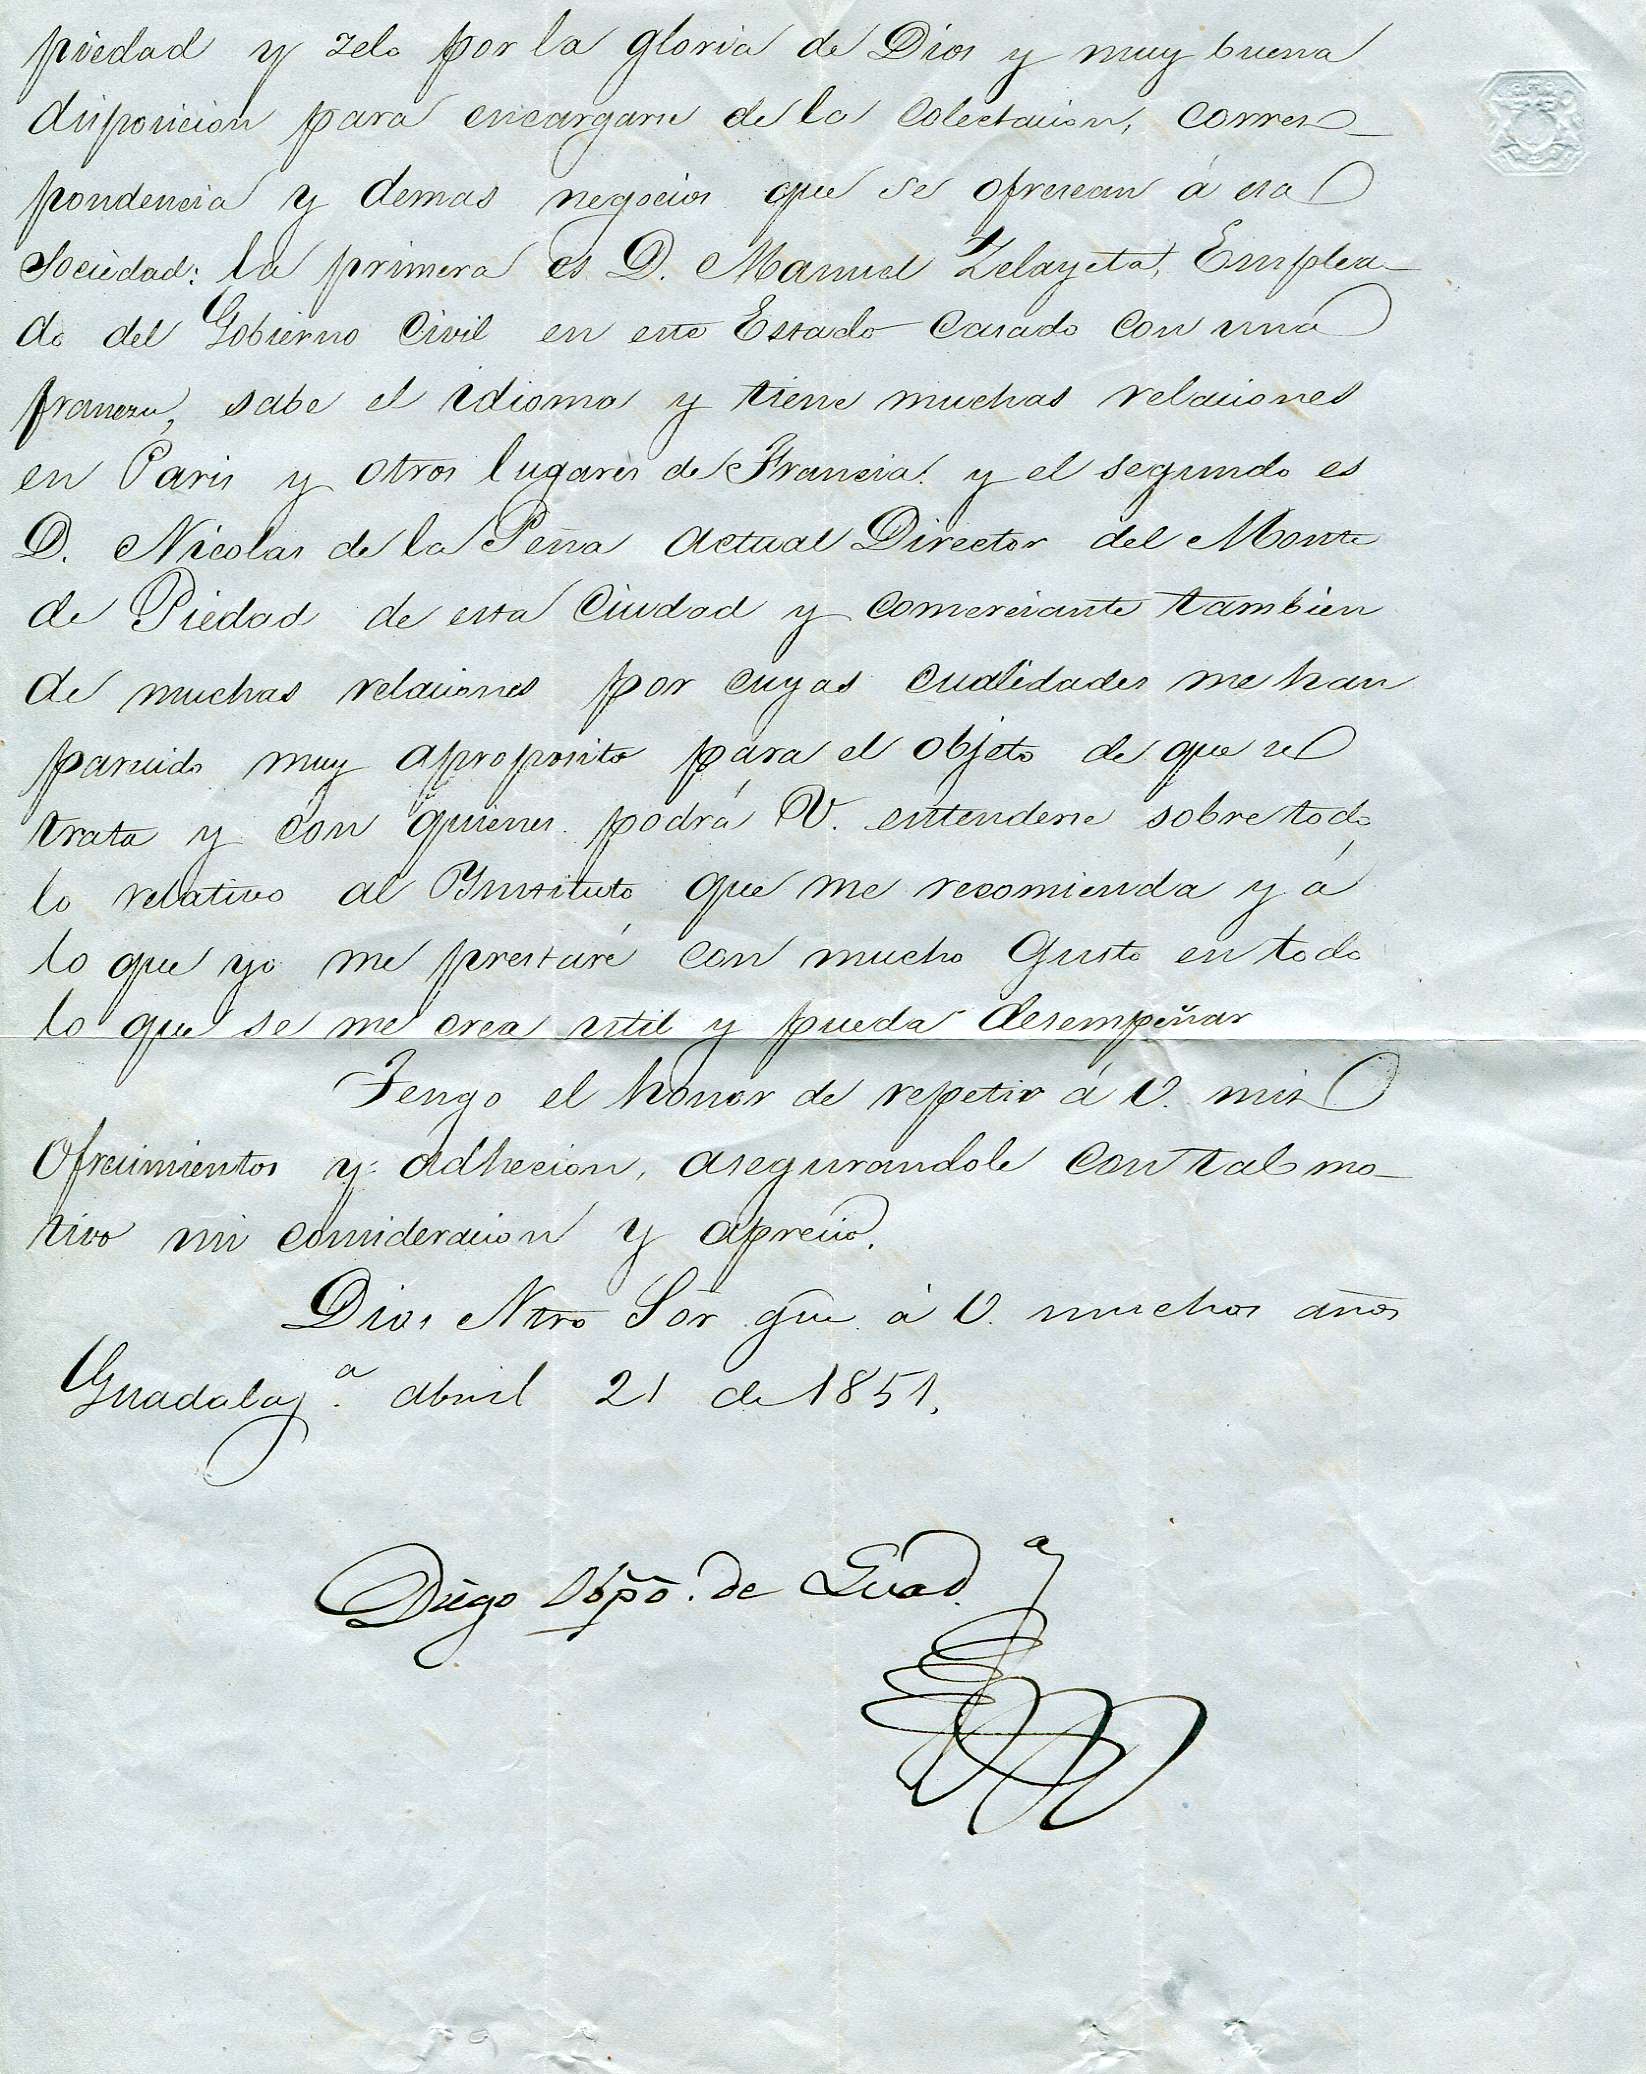 piedad y zelo por la gloria de Dios y muy buena
disposicion para encargarse de la Colectacion, corres-
pondencia y demas negocios que se ofrescan á esa
Sociedad: la primera es D. Manuel Zelayeta, Emplea-
do del Gobierno Civil en este Estado Casado con una
franceza, sabe el idioma y tiene muchas relaciones
en Paris y otros lugares de Francia: y el segundo es
D. Nicolas de la Peña actual Director del Monte
de Piedad de esta Ciudad y comerciante tambien
de muchas relaciones por cuyas cualidades me han
parecido muy aproposito para el objeto de que se
trata y con quienes podrá V. entenderse sobre todo
lo relativo al Ynstituto que me recomienda y á
lo que yo me prestaré con mucho gusto en todo
lo que se me crea util y pueda desempeñar
Tengo el honor de repetir á V. mis
Ofrecimientos y adhecion, asegurandole con tal mo-
tivo mi consideracion y aprecio.
Dios Ntro Sor gue á V. muchos años
Guadalajª. abril 21 de 1851.
Diego Obpõ. de Guadª